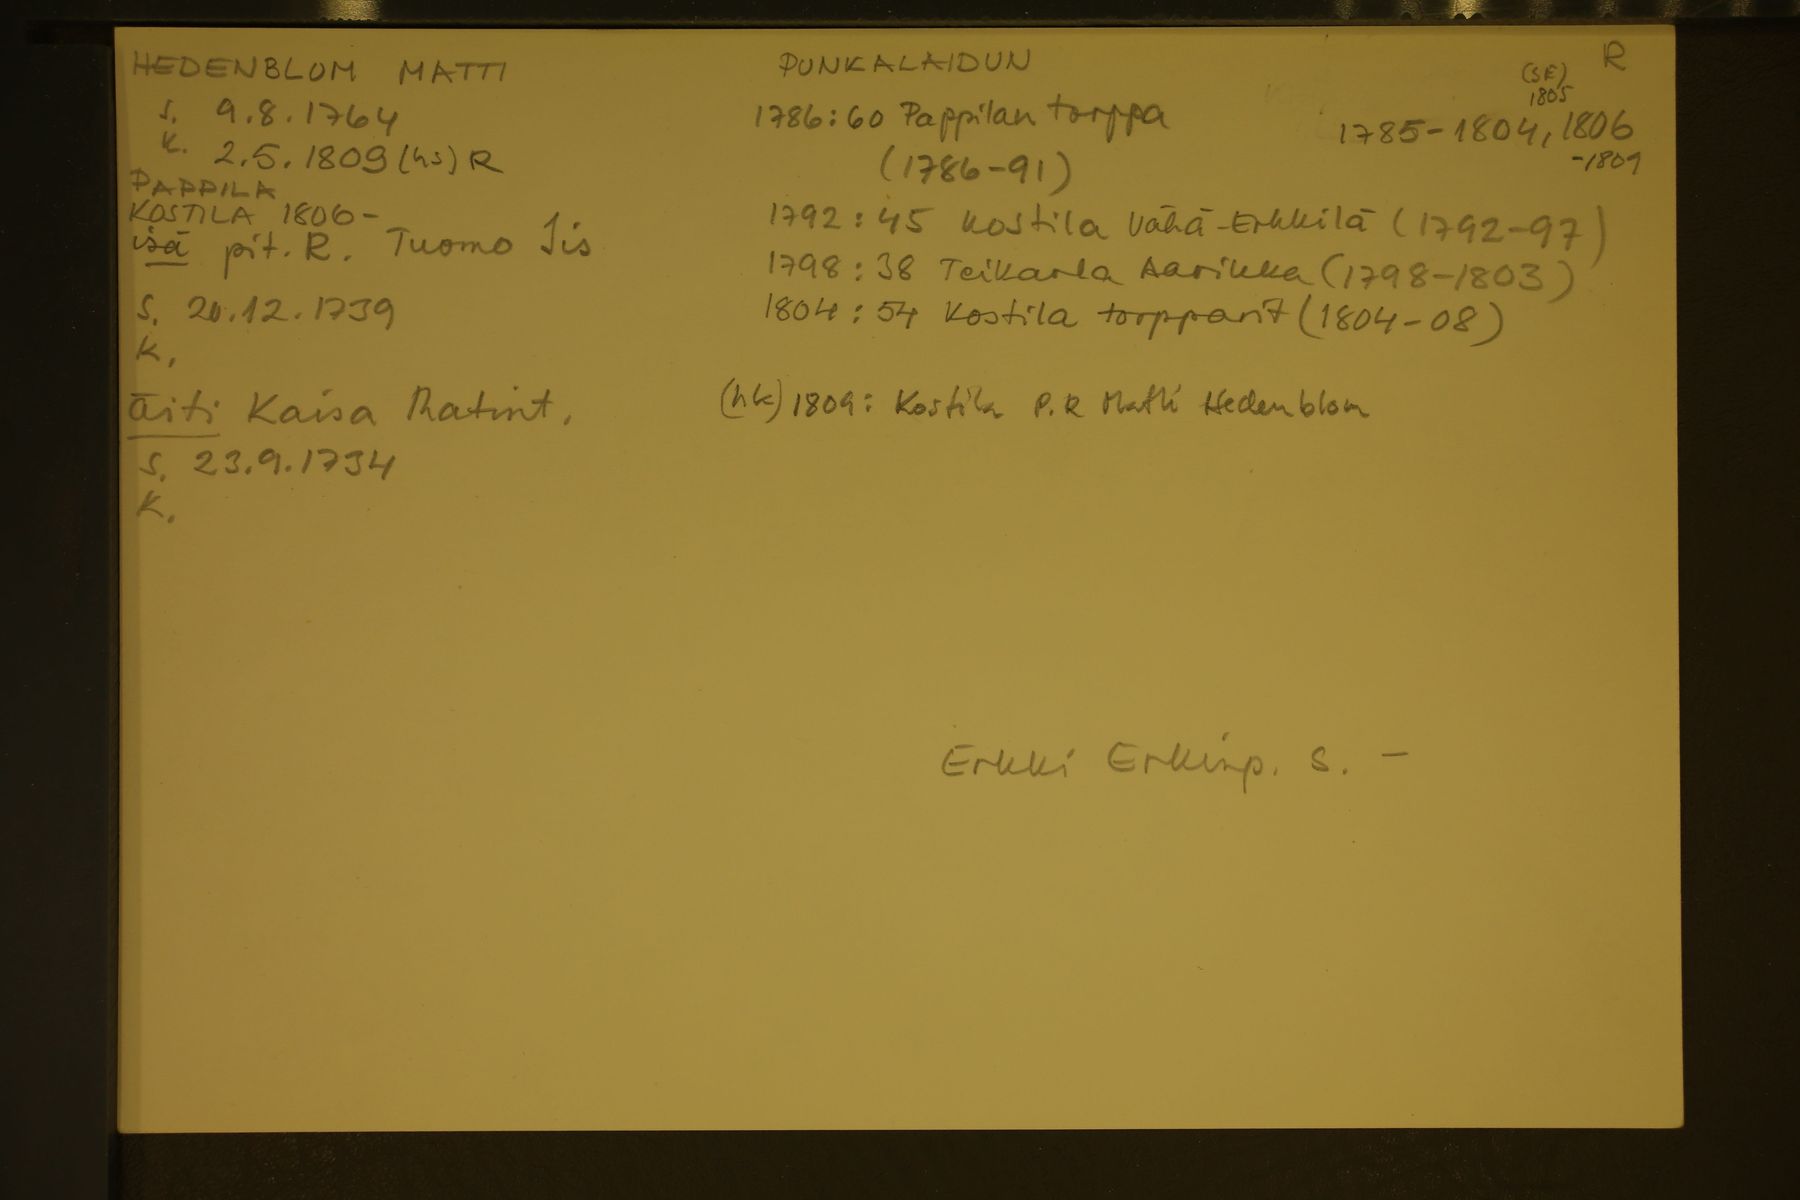 HEDENBLOM MATTI
s. 9.8.1764
k. 2.5.1809 (hs) R
PAPPILA
KOSTILA 1806-
isä pit. R. Tuomo Iis
s. 20.12.1739
k.
äiti Kaisa Matint.
s. 23.9.1734
k.
PUNKALAIDUN
1786:60 Pappilan torppa
(1786-91)
1792:45 Kostila Vähä-Erkkilä (1792-97)
1798:38 Teikarla Aarikka (1798-1803)
1804:54 Kostila torpparit (1804-08)
(hk) 1809: Kostila P.R Matti Hedenblom
Erkki Erkinp. s. -
R
(SE)
1805
1785-1804, 1806
-1809